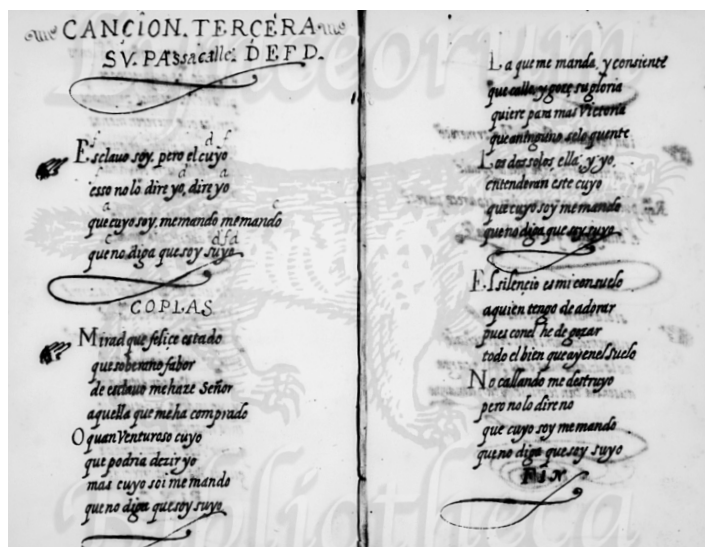 CANCION. TERCERA
SV. PASsacalle. D E F D.
f d f
Esclavo soy, pero el cuyo
d a
esso no lo dire yo, dire yo
a c
que cuyo soy, me mando me mando
c d f d
que no diga que soy suyo
COPLAS
Mirad que felice estado
que soberano fabor
de esclavo me haze Señor
aquella que me ha comprado
O quan Venturoso cuyo
que podria dezir yo
mas cuyo soi me mando
que no diga que soy suyo
La que me manda, y consiente
que calle, y goze su gloria
quiere para mas Victoria
que a ninguno se lo quente
Los dos solos, ella, y yo
entenderan este cuyo
que cuyo soy me mando
que no diga que soy suyo
El silencio es mi consuelo
a quien tengo de adorar
pues con el he de gozar
todo el bien que ay en el Suelo
No callando me destruyo
pero no lo dire no
que cuyo soy me mando
que no diga que soy suyo
FIN
Lynceorum
Bibliotheca